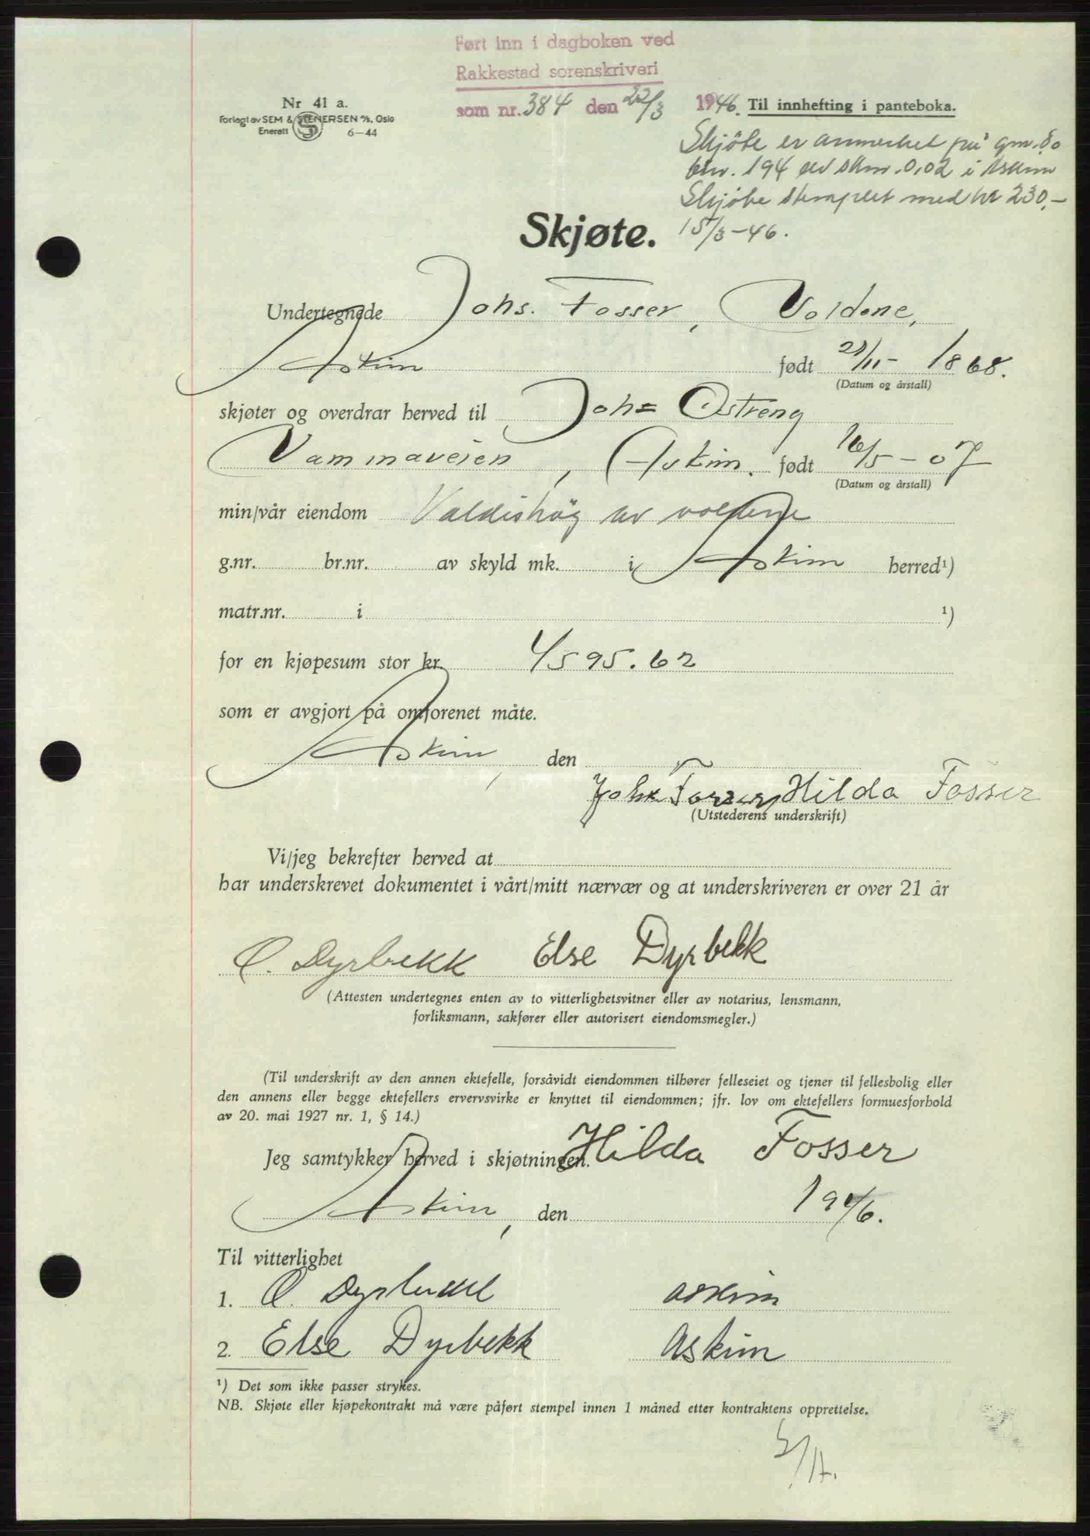 Ført inn i dagboken ved
Rakkestad sorenskriveri
som nr. 384 den 22/3 1946. Til innhefting i panteboka.
Nr 41 a.
Forlagt av SEM & STENERSEN A/S, Oslo
Enerett S 6-44
Skjøte er anmerket på gnr. 80
bnr. 194 av skm. 0,02 i Askim
Skjøte stemplet med kr 230,-
15/3-46.
Skjøte.
Undertegnede Johs. Fosser, Voldene,
Askim født 21/11- 1868.
(Datum og årstall)
skjøter og overdrar herved til Johs Østreng
Vammaveien, Askim. født 16/5-07
(Datum og årstall)
min/vår eiendom Valdishøg av voldene
g.nr. br.nr. av skyld mk. i Askim herred¹)
matr.nr. i ¹)
for en kjøpesum stor kr. 4595.62
som er avgjort på omforenet måte.
Askim, den
Johs Fosser Hilda Fosser
(Utstederens underskrift)
Vi/jeg bekrefter herved at
har underskrevet dokumentet i vårt/mitt nærvær og at underskriveren er over 21 år
O. Dyrbekk Else Dyrbekk
(Attesten undertegnes enten av to vitterlighetsvitner eller av notarius, lensmann,
forliksmann, sakfører eller autorisert eiendomsmegler.)
(Til underskrift av den annen ektefelle, forsåvidt eiendommen tilhører felleseiet og tjener til fellesbolig eller
den annens eller begge ektefellers ervervsvirke er knyttet til eiendommen; jfr. lov om ektefellers formuesforhold
av 20. mai 1927 nr. 1, § 14.)
Jeg samtykker herved i skjøtningen. Hilda Fosser
Askim, den 1946.
Til vitterlighet
1. O. Dyrbekk Askim
2. Else Dyrbekk Askim
¹) Det som ikke passer strykes.
NB. Skjøte eller kjøpekontrakt må være påført stempel innen 1 måned etter kontraktens opprettelse.